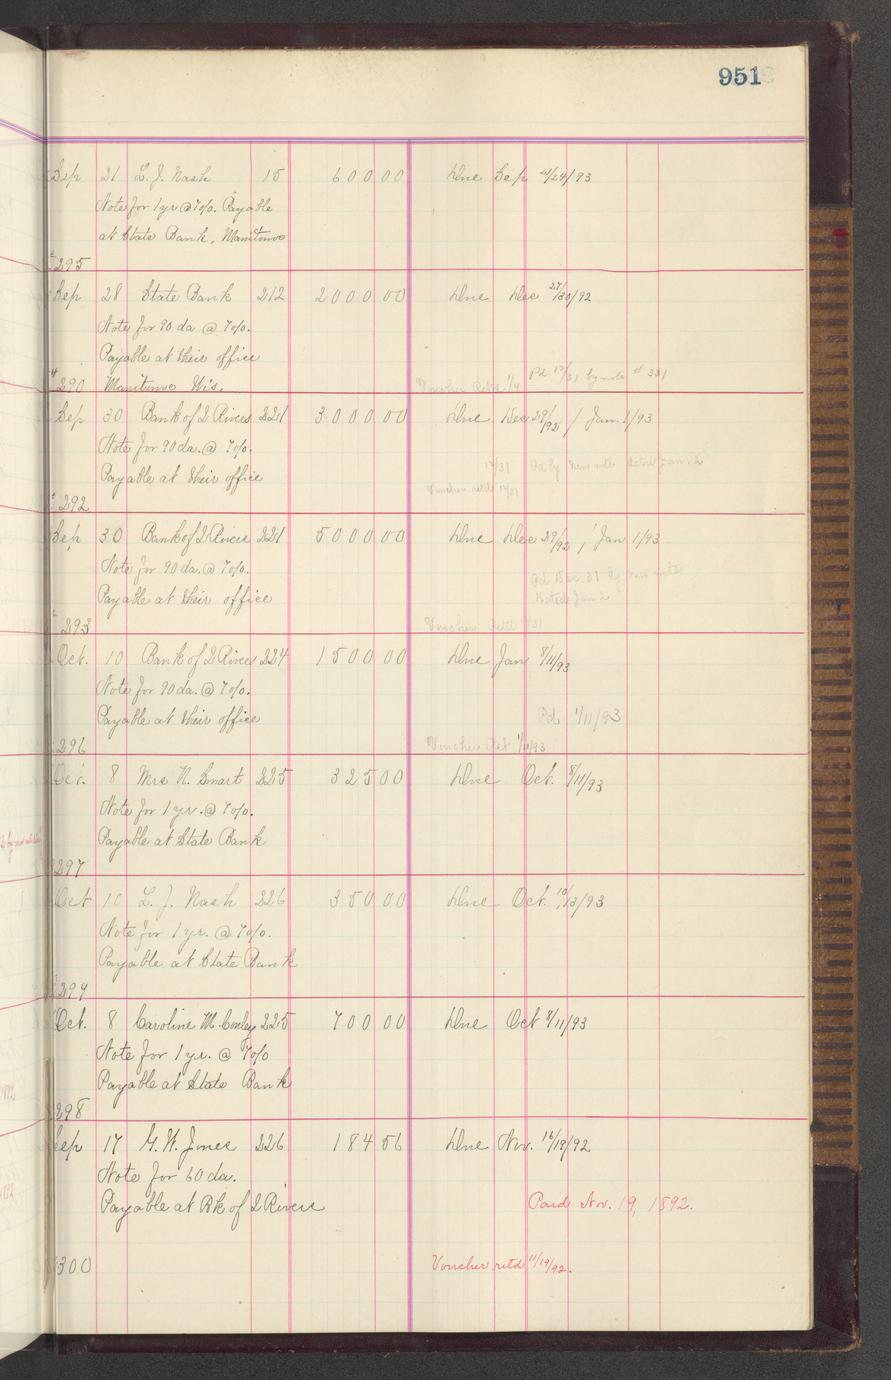 951
Sep 21 L. J. Nash 15 600 00 Due Sep 21/24/93
Note for 1 yr @ 7%. Payable
at State Bank, Manitowoc
295
Sep 28 State Bank 212 2000 00 Due Dec 27/30/92
Note for 90 da @ 7%.
Payable at their office
Pd 12/31 by note # 331
290 Manitowoc Wis. Voucher Retd 1/4
Sep 30 Bank of 2 Rivers 221 3000 00 Due Dec 29/92 / Jan. 1/93
Note for 90 da. @ 7%.
12/31 Pd by New note dated Jan. 2
Payable at their office
Voucher retd 12/31
292
Sep 30 Bank of 2 Rivers 221 5000 00 Due Dec 29/92 / Jan 1/93
Note for 90 da. @ 7%.
Pd Dec. 31 by new note
Payable at their office Dated Jan 2
293 Voucher Retd 12/31
Oct. 10 Bank of 2 Rivers 224 1500 00 Due Jan 8/11/93
Note for 90 da. @ 7%.
Payable at their office Pd 1/11/93
296 Voucher Ret 1/11/93
Oct. 8 Mrs N. Smart 225 325 00 Due Oct. 8/11/93
Note for 1 yr. @ 7%.
Payable at State Bank
297
Oct 10 L. J. Nash 226 350 00 Due Oct. 10/13/93
Note for 1 yr. @ 7%.
Payable at State Bank
299
Oct. 8 Caroline M. Conley 225 700 00 Due Oct 8/11/93
Note for 1 yr. @ 7%
Payable at State Bank
298
Sep 17 G. W. Jones 226 184 56 Due Nov. 16/19/92
Note for 60 da.
Payable at Bk of 2 Rivers Paid Nov. 19, 1892.
300 Voucher retd 11/19/92.